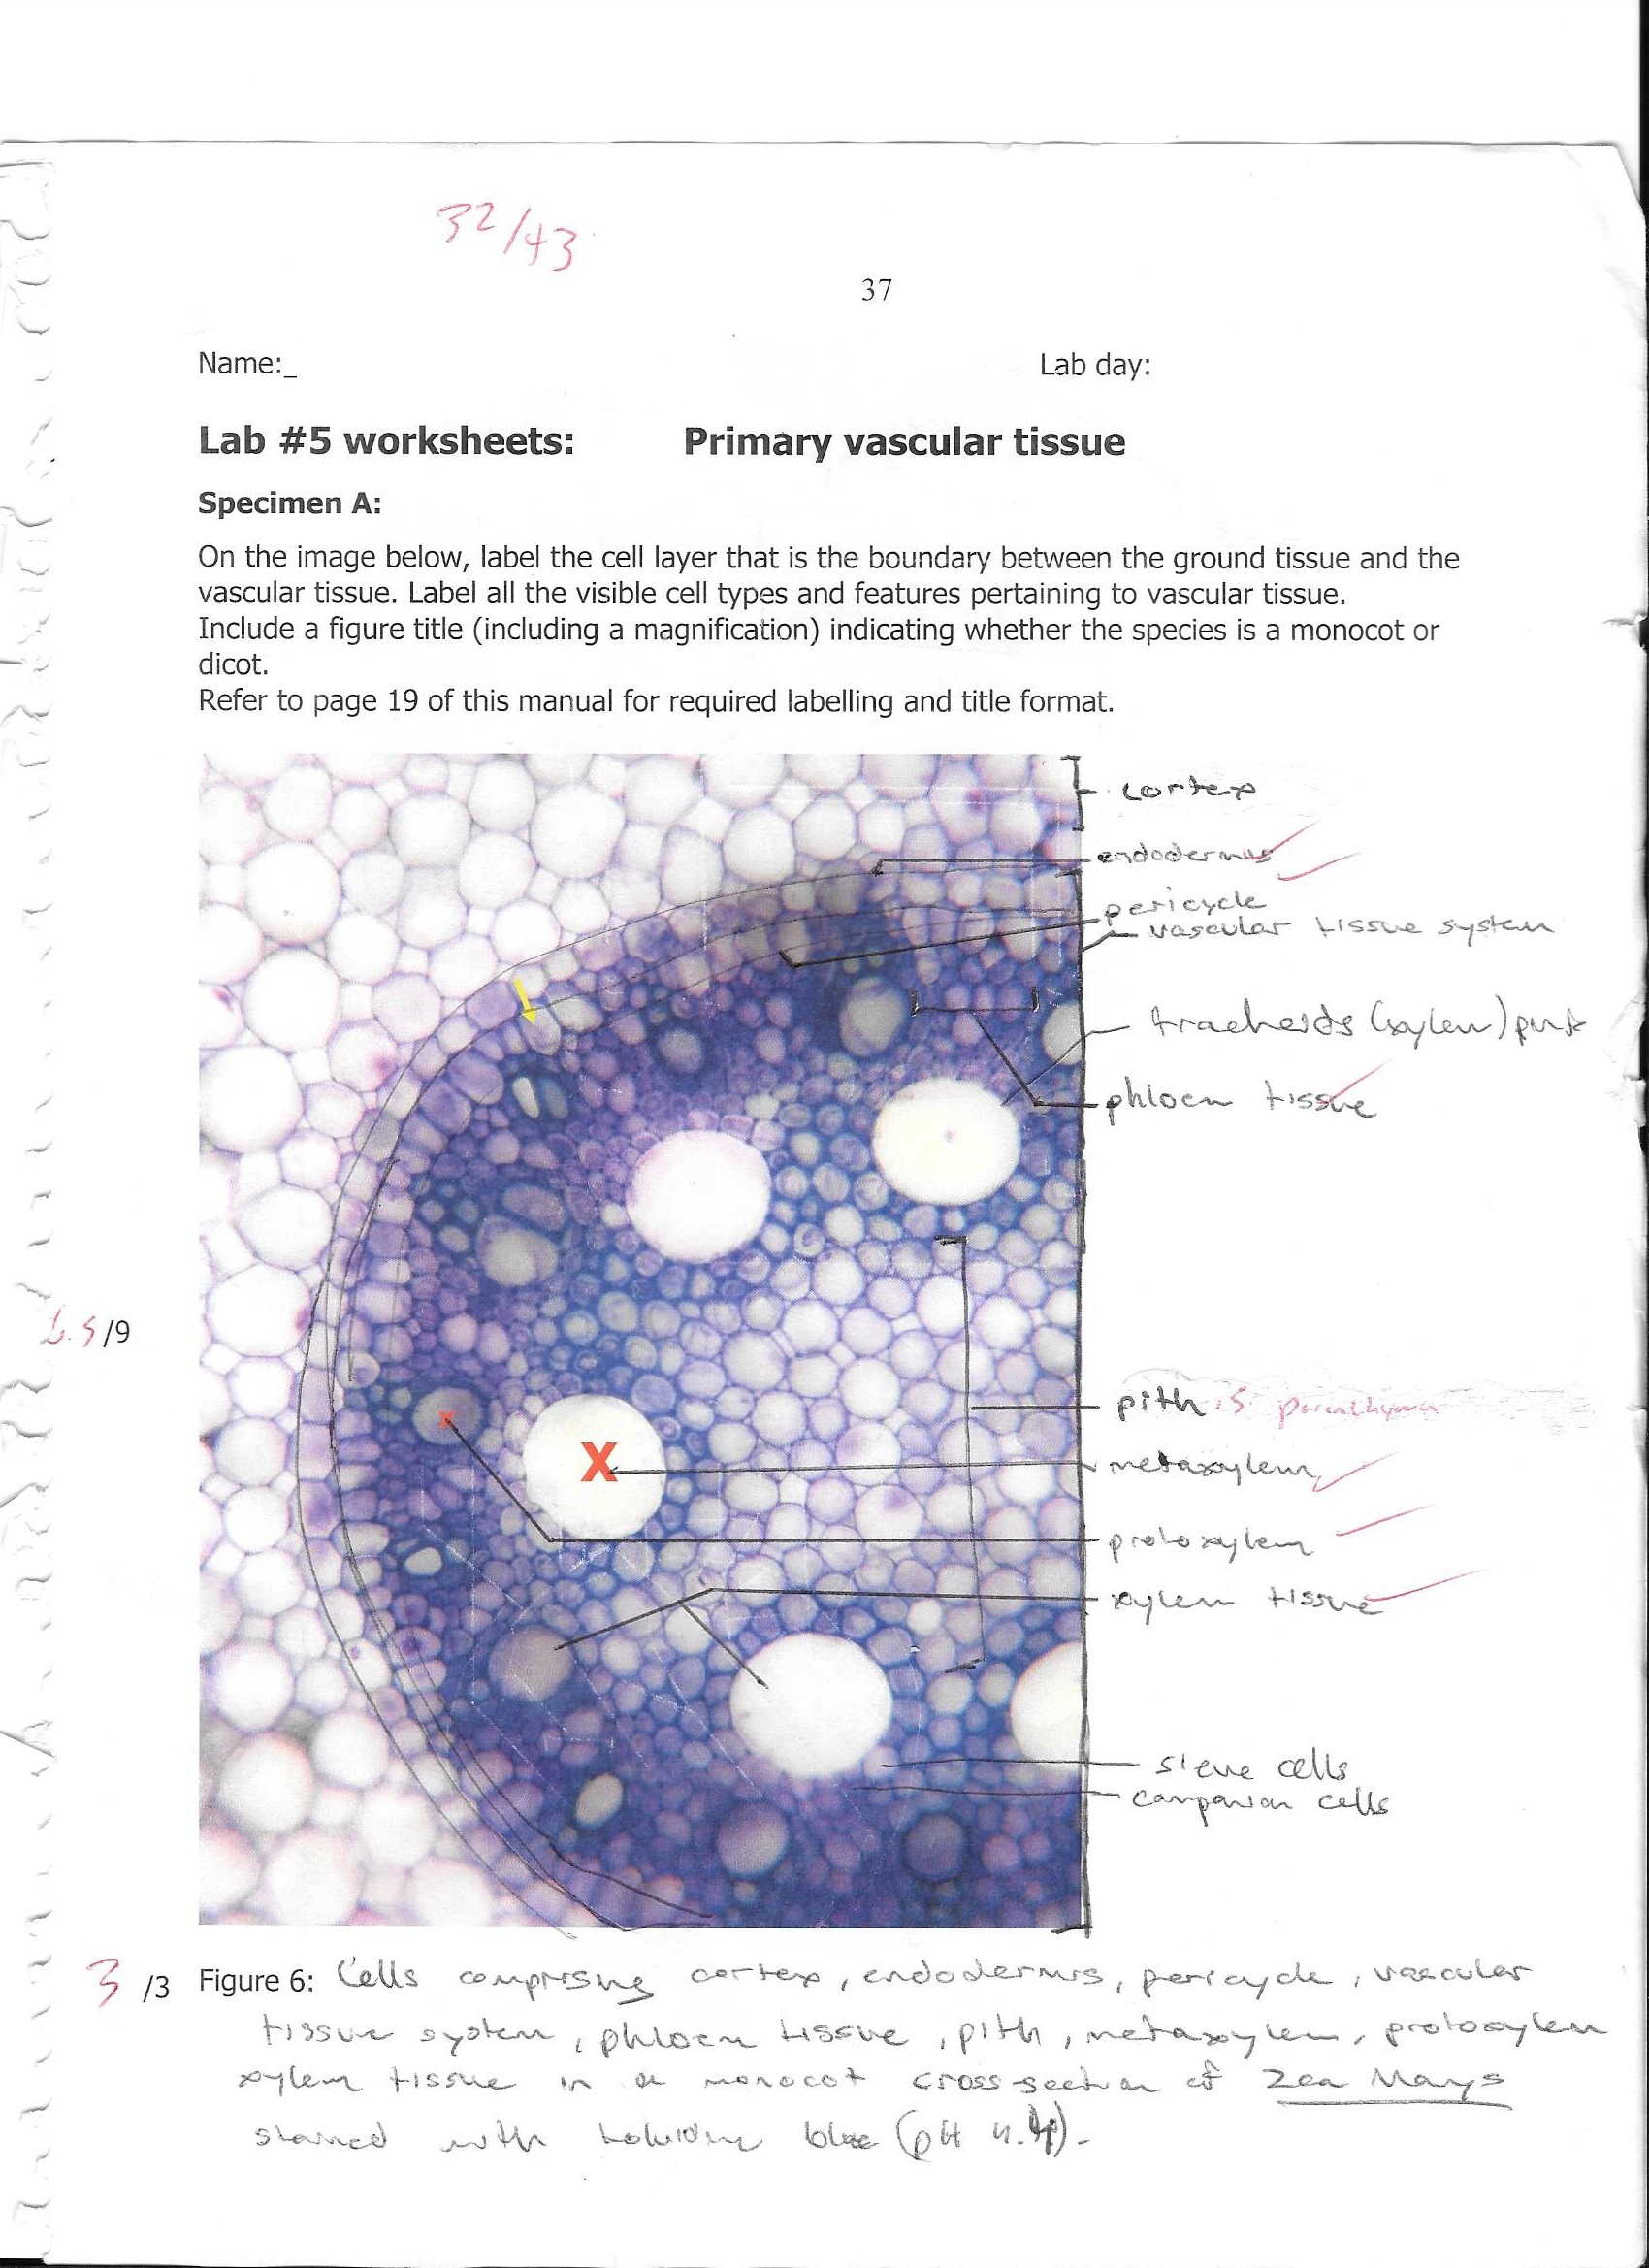 32/43
37
Name:_ Lab day:
Lab #5 worksheets: Primary vascular tissue
Specimen A:
On the image below, label the cell layer that is the boundary between the ground tissue and the
vascular tissue. Label all the visible cell types and features pertaining to vascular tissue.
Include a figure title (including a magnification) indicating whether the species is a monocot or
dicot.
Refer to page 19 of this manual for required labelling and title format.
cortex
endodermis
pericycle
vascular tissue system
tracheids (xylem)
phloem tissue
/9
pith is parenchyma
X
X
metaxylem
protoxylem
xylem tissue
sieve cells
companion cells
3 /3 Figure 6: Cells comprising cortex, endodermis, pericycle, vascular
tissue system, phloem tissue, pith, metaxylem, protoxylem
xylem tissue in a monocot cross-section of Zea Mays
stained with toluidine blue (pH 4.4).